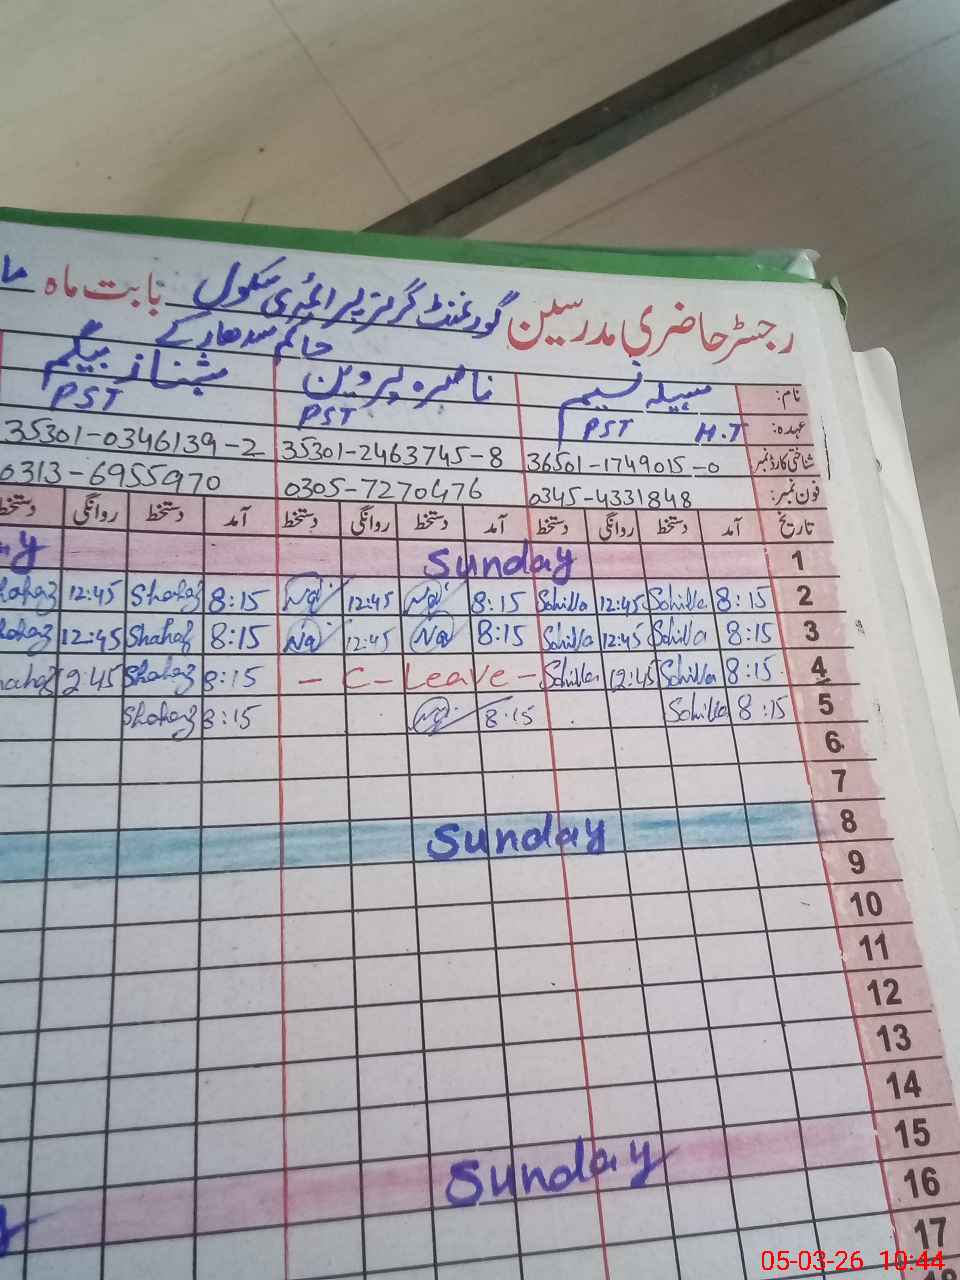 رجسٹر حاضری مدرسین گورنمنٹ گرلز پرائمری سکول بابت ماہ ما
حاکم سدھار کے
نام: سہیلہ نسیم ناصرہ پروین شہناز بیگم
عہدہ: H.T PST PST PST
شناختی کارڈ نمبر 36501-1749015-0 35301-2463745-8 35301-0346139-2
فون نمبر: 0345-4331848 0305-7270476 0313-6955970
تاریخ آمد دستخط روانگی دستخط آمد دستخط روانگی دستخط آمد دستخط روانگی دستخط
1 Sunday
2 8:15 Sohilla 12:45 Sohilla 8:15 12:45 8:15 Shahaz 12:45
3 8:15 Sohilla 12:45 Sohilla 8:15 12:45 8:15 Shahaz 12:45
4 8:15 Sohilla 12:45 Sohilla - C- Leave - 8:15 Shahaz 12:45
5 8:15 Sohilla 8:15 8:15 Shahaz
6
7
8 Sunday
9
10
11
12
13
14
15 Sunday
16
17
05-03-26 10:44